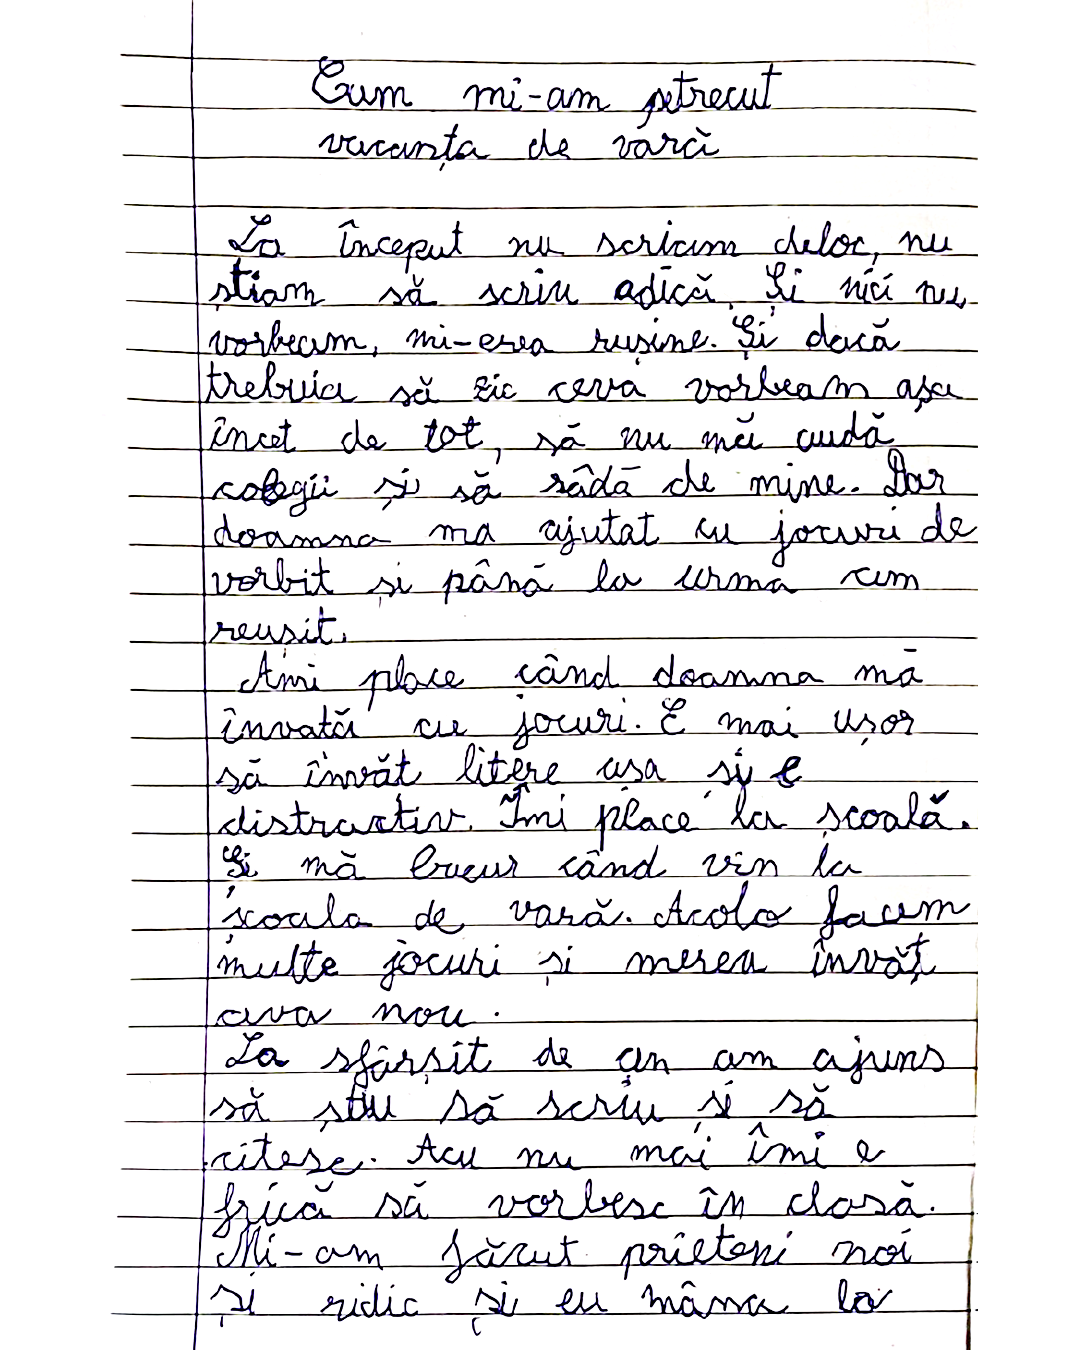 Cum mi-am petrecut
vacanța de vară
La început nu scriam deloc, nu
știam să scriu adică. Și nici nu
vorbeam, mi-erea rușine. Și dacă
trebuia să zic ceva vorbeam așa
încet de tot, să nu mă audă
colegii și să râdă de mine. Dar
doamna ma ajutat cu jocuri de
vorbit și până la urma am
reușit.
Ami place când doamna mă
învată cu jocuri. E mai ușor
să învăt litere așa și e
distractiv. Îmi place la școală.
Și mă bucur când vin la
școala de vară. Acolo facem
multe jocuri și mereu învăț
ceva nou.
La sfârșit de an am ajuns
să știu să scriu și să
citesc. Acu nu mai îmi e
frică să vorbesc în clasă.
Mi-am făcut prieteni noi
și ridic și eu mâna la